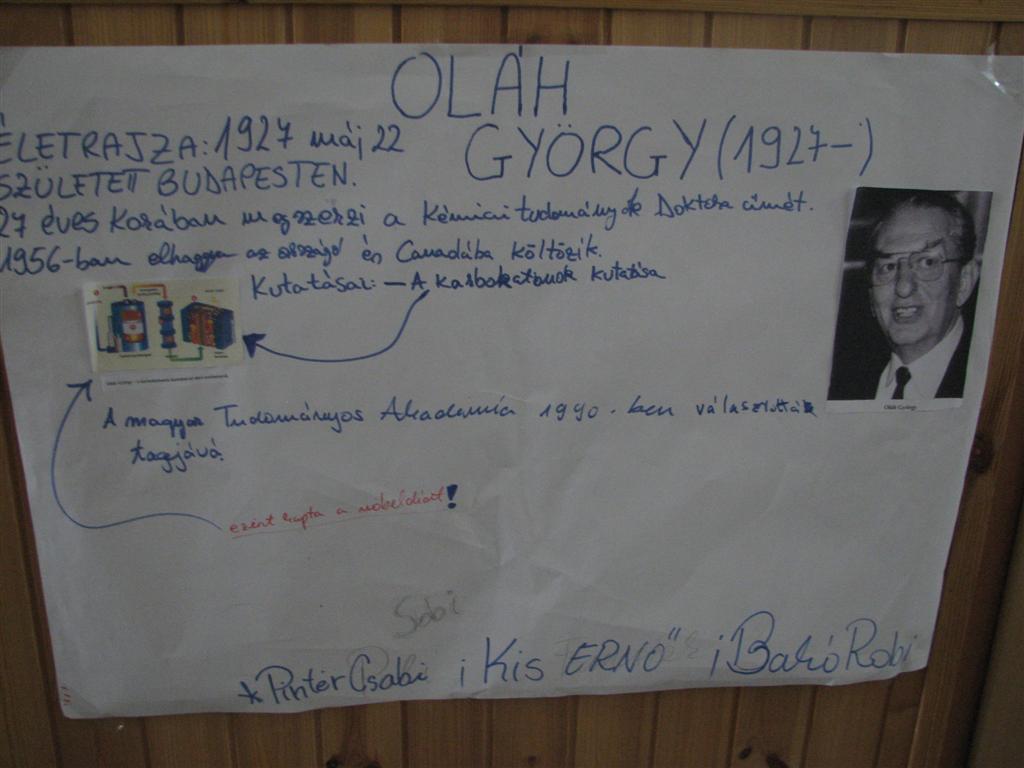 OLÁH
GYÖRGY (1927-)
ÉLETRAJZA: 1927 máj 22
SZÜLETETT BUDAPESTEN.
27 éves korában megszerzi a Kémiai tudományok Doktora címét.
1956-ban elhagyja az országó és Canadába költözik.
Kutatásai: - A karbokationok kutatása
Oláh György
A magyar Tudományos Akadémia 1990-ben választották
tagjává.
ezért kapta a nóbeldíart!
Sobi
*Pintér Csabi i Kis ERNŐ i Bakó Robi